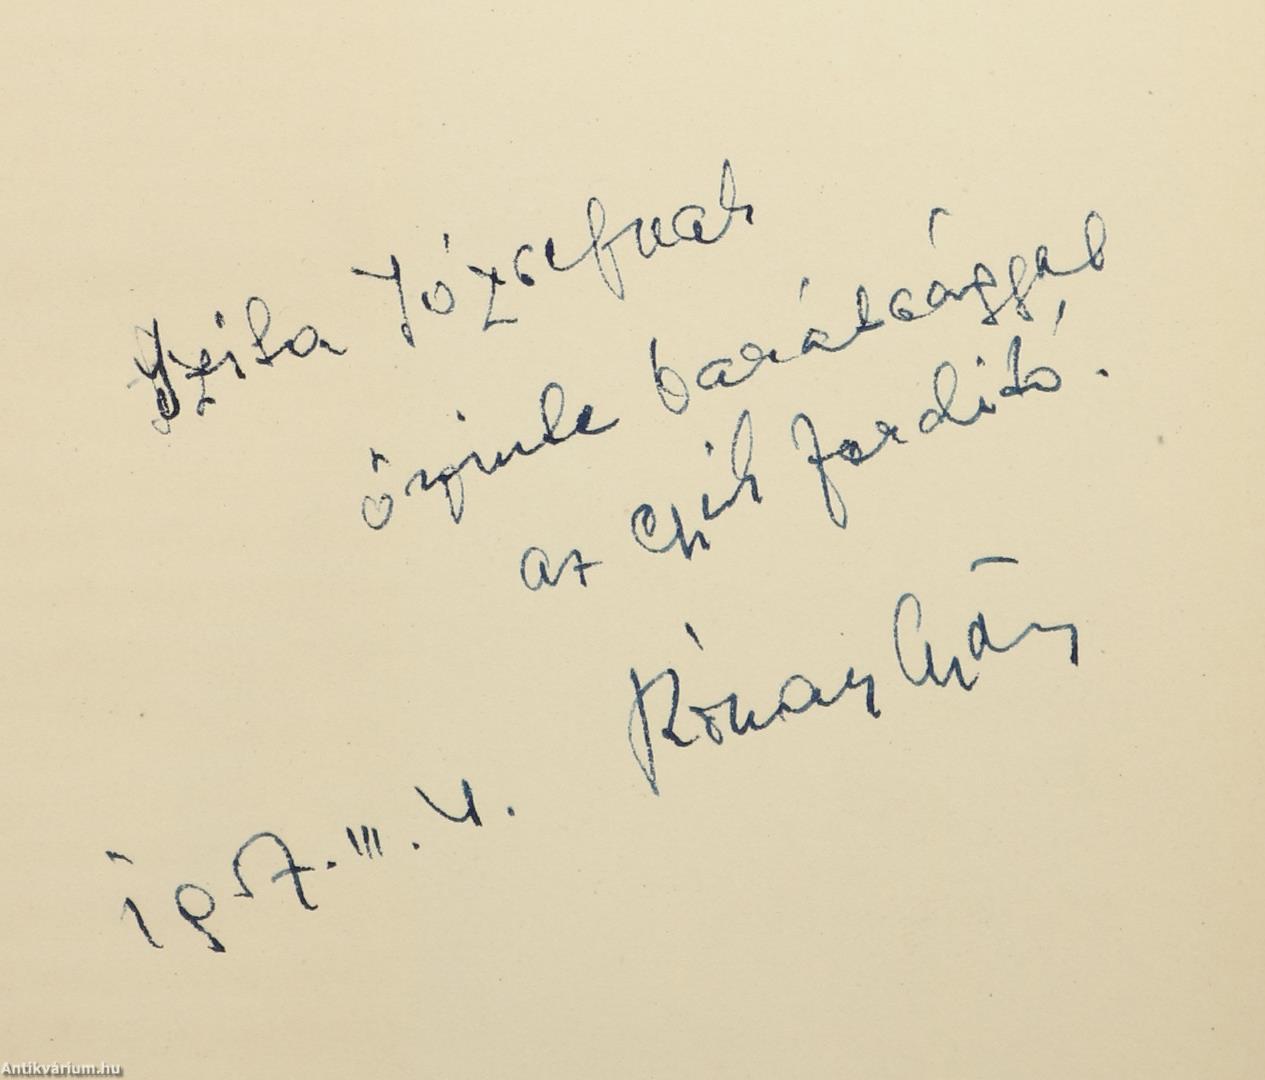 Szita Józsefnak
őszinte barátsággal
az egyik fordító.
Rónay György
1957. III. 4.
Antikvárium.hu